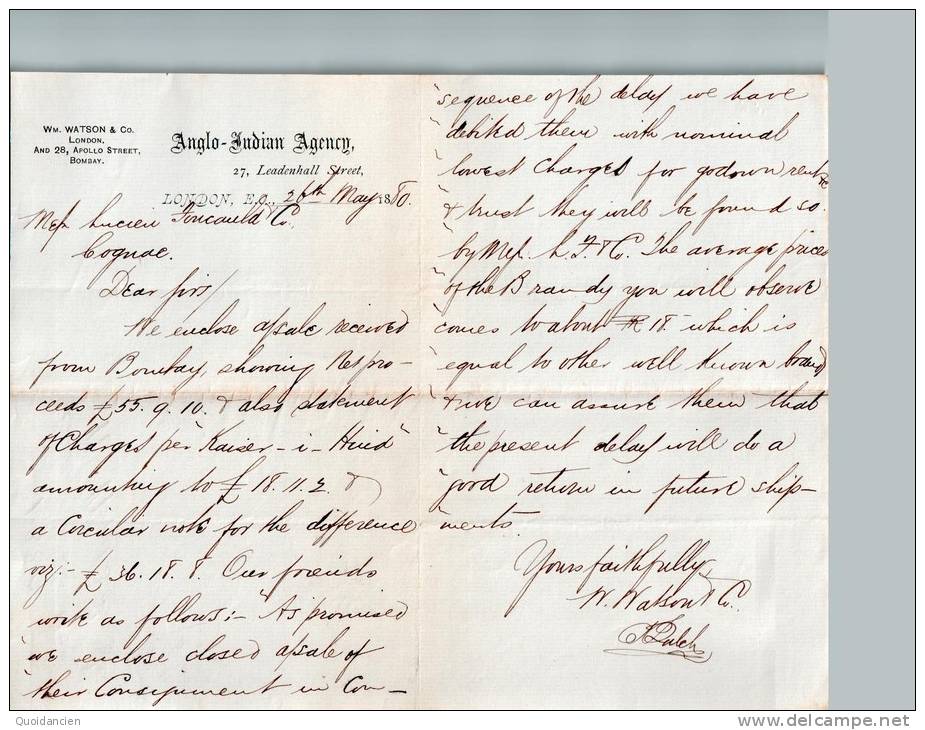 WM. WATSON & CO.
LONDON,
AND 28, APOLLO STREET,
BOMBAY.
Anglo-Indian Agency,
27, Leadenhall Street,
LONDON, E.C., 26th May 1880.
Mess Lucien Foucauld & Co.
Cognac.
Dear Sirs/
We enclose a/sale received
from Bombay, showing Net pro-
ceeds £55. 9. 10. & also statement
of Charges per "Kaiser-i-Hind"
amounting to £18. 11. 2. &
a Circular note for the difference
viz:- £36. 18. 8. Our friends
write as follows:- "As promised
"we enclose closed a/sale of
"their Consignment in Con-
"sequence of the delay we have
"debited them with nominal
"lowest charges for godown rent &c
"& trust they will be found so
"by Mess. L. F. & Co. The average prices
"of the Brandy you will observe
"comes to about R 18 - which is
"equal to other well known brands
"& we can assure them that
"the present delay will do a
"good return in future ship-
"ments
Yours faithfully
W. Watson & Co.
Quoidancien
www.delcampe.net